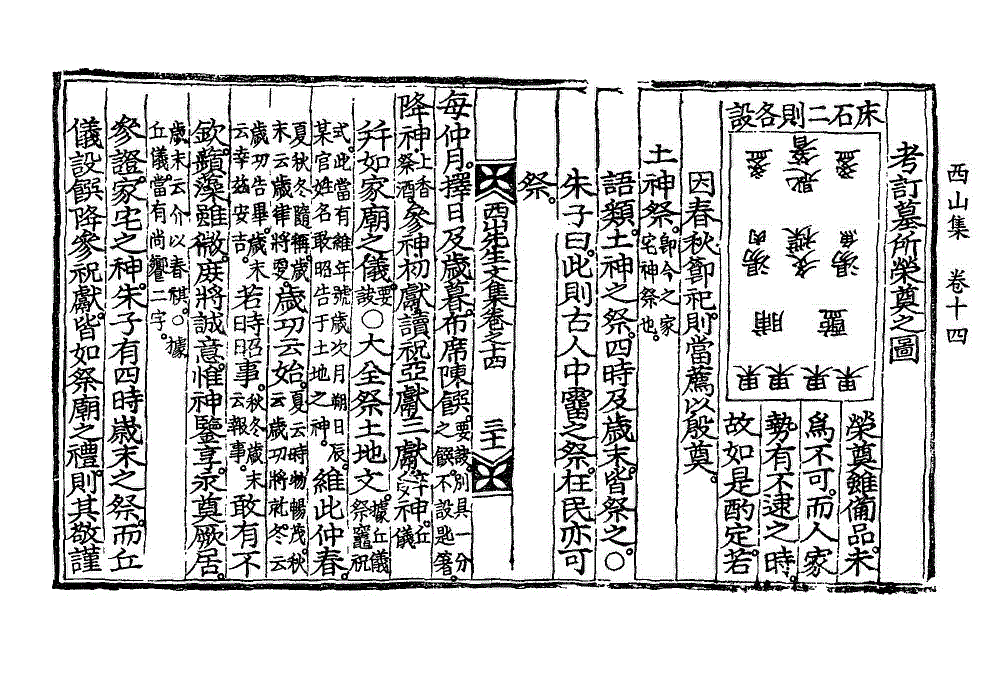 西山集 卷十四
考訂墓所榮奠之圖
床石二則各設
盞 匙箸 盞
湯魚 炙楪 湯肉
醢 脯
果 果 果 果
榮奠雖備品未
爲不可而人家
勢有不逮之時
故如是酌定若
因春秋節祀則當薦以殷奠
土神祭卽今之家宅神祭也
語類土神之祭四時及歲末皆祭之○
朱子曰此則古人中霤之祭在民亦可
祭
西山先生文集卷之十四 三十一
每仲月擇日及歲暮布席陳饌要訣別具一分之饌不設匙箸
降神上香祭酒參神初獻讀祝亞獻三獻辭神丘儀
幷如家廟之儀要訣○大全祭土地文據丘儀祭竈祝
式此當有維年號歲次月朔日辰某官姓名敢昭告于土地之神維此仲春
夏秋冬隨稱歲末云歲律將更歲功云始夏云時物暢茂秋云歲功將就冬云
歲功告畢歲末云幸玆安吉若時昭事秋冬歲末云報事敢有不
欽蘋藻雖微庶將誠意惟神鑒享永奠厥居
歲末云介以春祺○據丘儀當有尙饗二字
參證家宅之神朱子有四時歲末之祭而丘
儀設饌降參祝獻皆如祭廟之禮則其敬謹